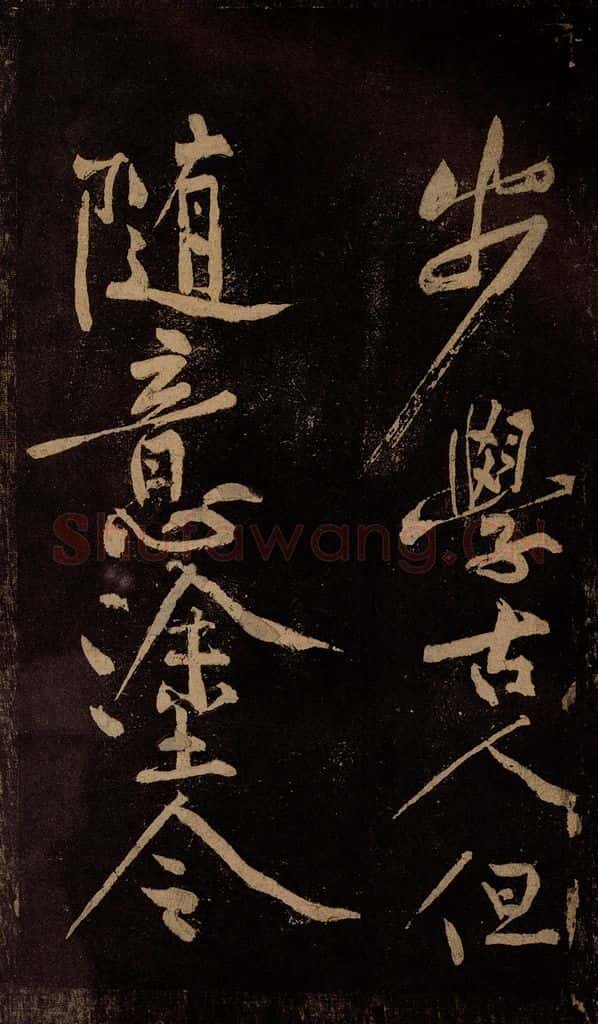 步學古人但
随意塗令
Shufawang.CN